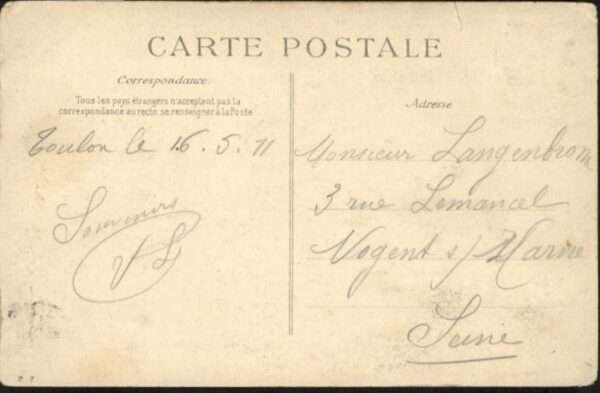 CARTE POSTALE
Correspondance
Tous les pays étrangers n'acceptent pas la
correspondance au recto, se renseigner à la Poste
Toulon le 16. 5. 11
Souvenirs
Adresse
Monsieur
3 rue Lemancel
Nogent s/ Marne
Seine